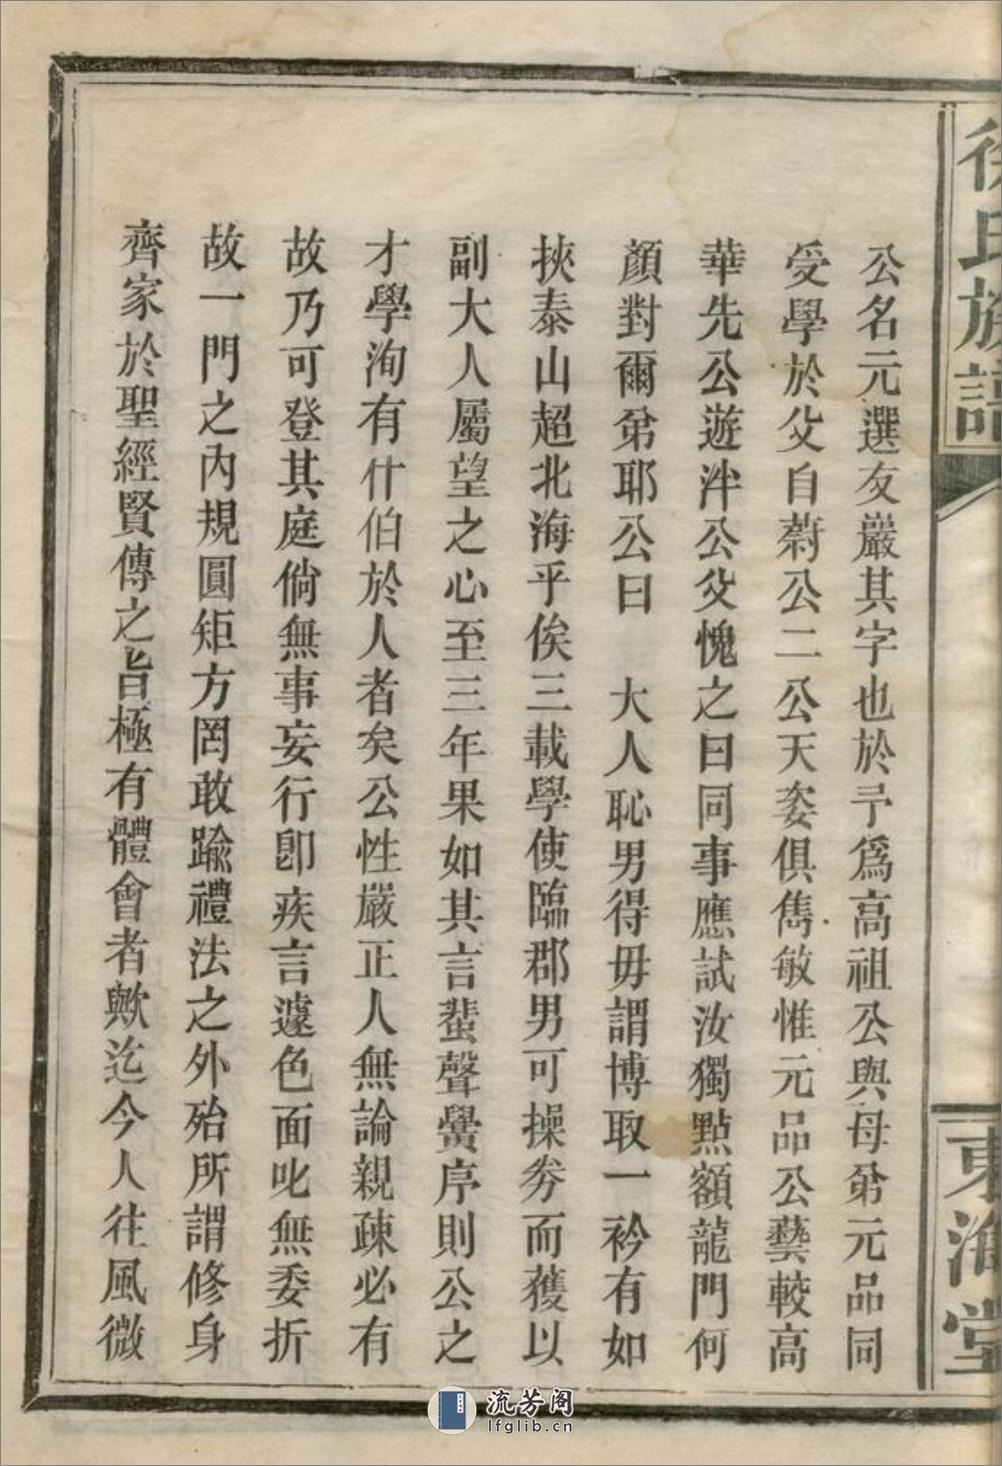 徐氏族譜
東海堂
公名元選友巖其字也於予爲高祖公與母弟元品同
受學於父自蔚公二公天姿俱雋敏惟元品公藝較高
華先公遊泮公父愧之曰同事應試汝獨點額龍門何
顏對爾弟耶公曰　大人恥男得毋謂博取一衿有如
挾泰山超北海乎俟三載學使臨郡男可操券而獲以
副大人屬望之心至三年果如其言蜚聲黌序則公之
才學洵有什伯於人者矣公性嚴正人無論親疎必有
故乃可登其庭倘無事妄行卽疾言遽色面叱無委折
故一門之內規圓矩方罔敢踰禮法之外殆所謂修身
齊家於聖經賢傳之旨極有體會者歟迄今人往風微
流芳阁
lfglib.cn